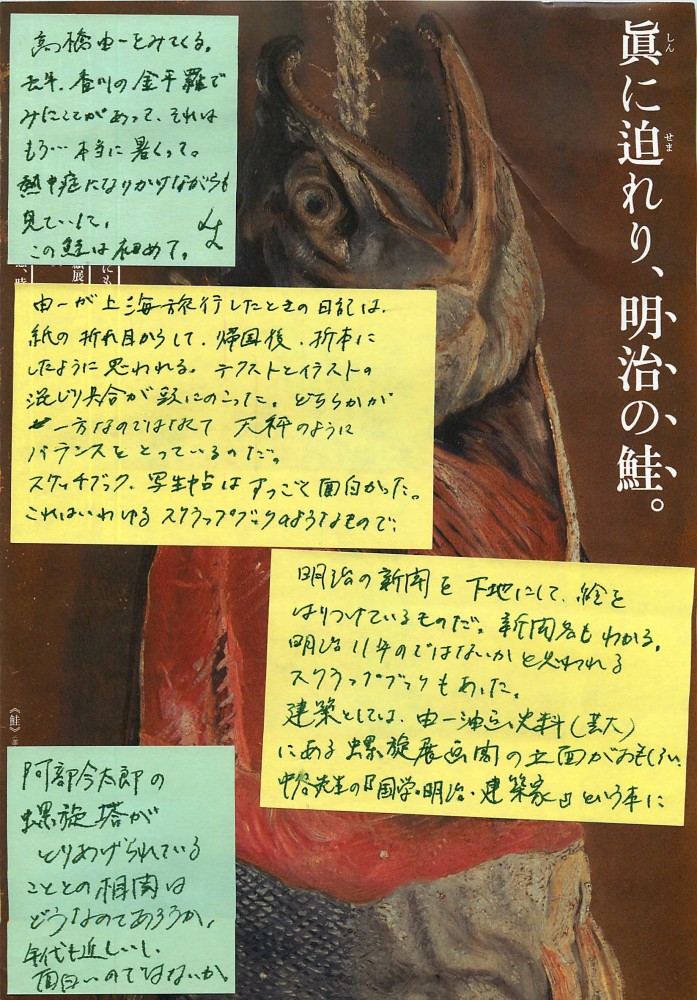 眞に迫れり、明治の鮭。
しん
せま
高橋由一をみてくる。
去年、香川の金平羅で
みたことがあって、それは
もう…本当に暑くって。
熱中症になりかけながらも
見ていて。
この鮭は初めて。
由一が上海旅行したときの日記は、
紙の折れ目からして、帰国後、折本に
したように思われる。テクストとイラストの
混じり具合が頭にのこった。どちらかが
一方なのではなくて 天秤のように
バランスをとっているのだ。
スケッチブック、写生帖はすっごく面白かった。
これはいわゆるスクラップブックのようなもので、
明治の新聞を下地にして、絵を
はりつけているものだ。新聞名もわかる。
明治11年のではないかと思われる
スクラップブックもあった。
建築としては、由一油画史料(芸大)
にある螺旋展画閣の立面がおもしろい。
中谷先生の『国学・明治・建築家』という本に
阿部今太郎の
螺旋塔が
とりあげられている
こととの相関は
どうなのであろうか。
年代も近しいし、
面白いのではないか。
《鮭》